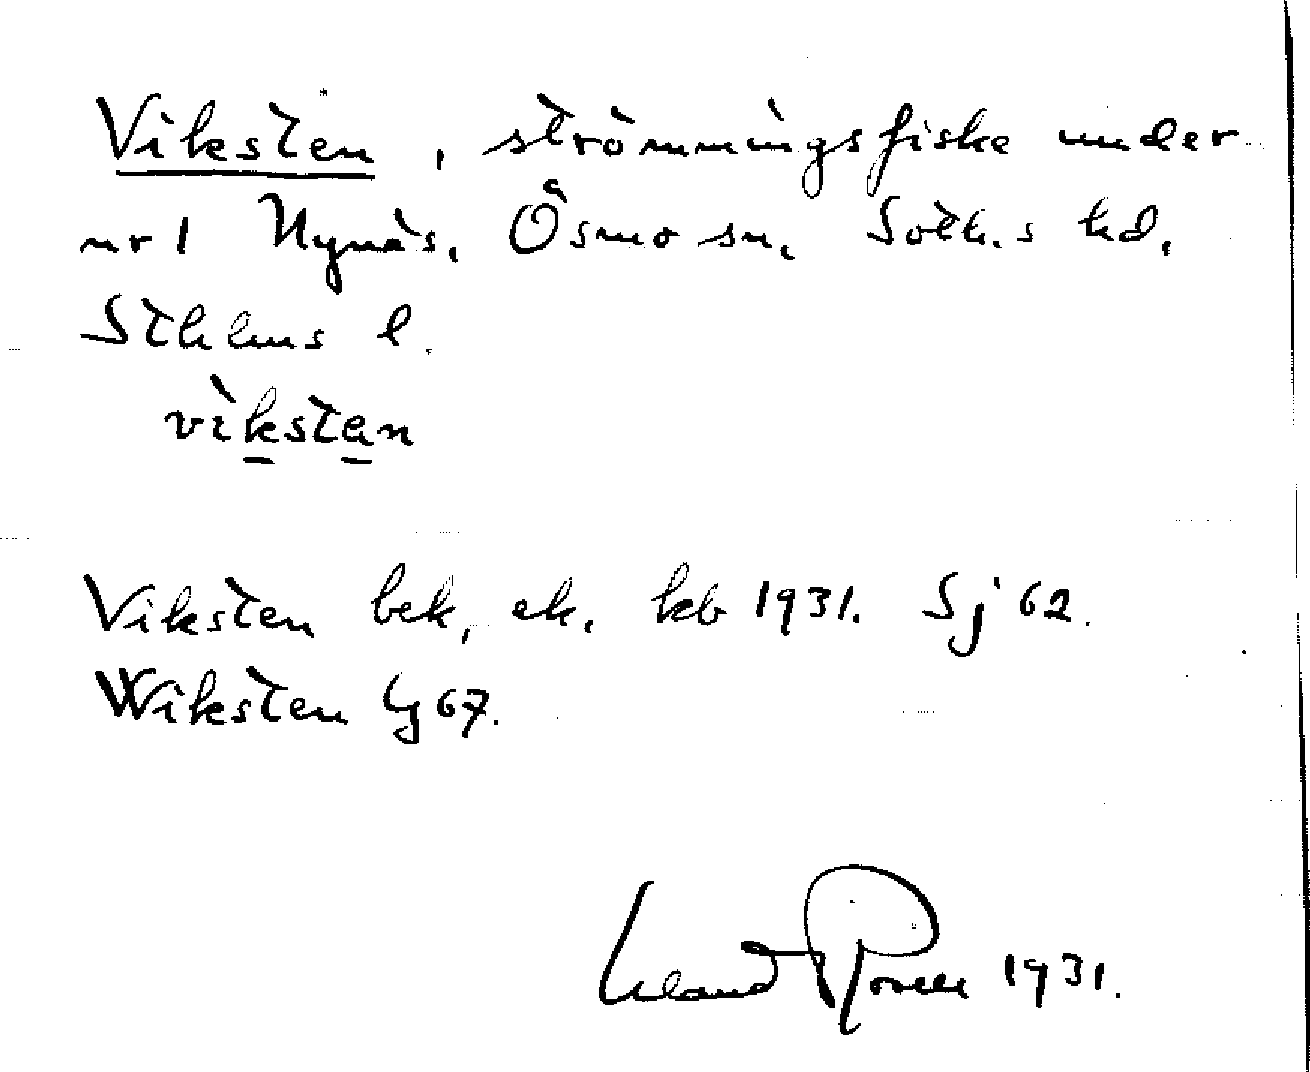 Viksten, strömmingsfiske under
nr 1 Nynäs, Ösmo sn, Soth.s hd,
Sthlms l.
vikstən
Viksten bek, ek, kb 1931. Sj 62.
Wiksten Lj 67.
1931.